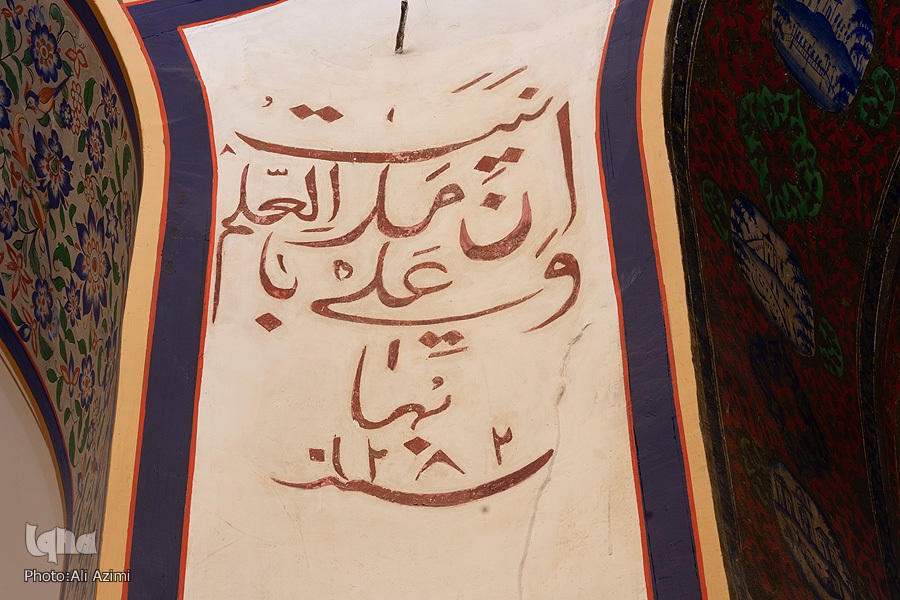 انا مدينة العلم
و علي با
بها
سنة ١٢٨٢
Iqna
Photo:Ali Azimi